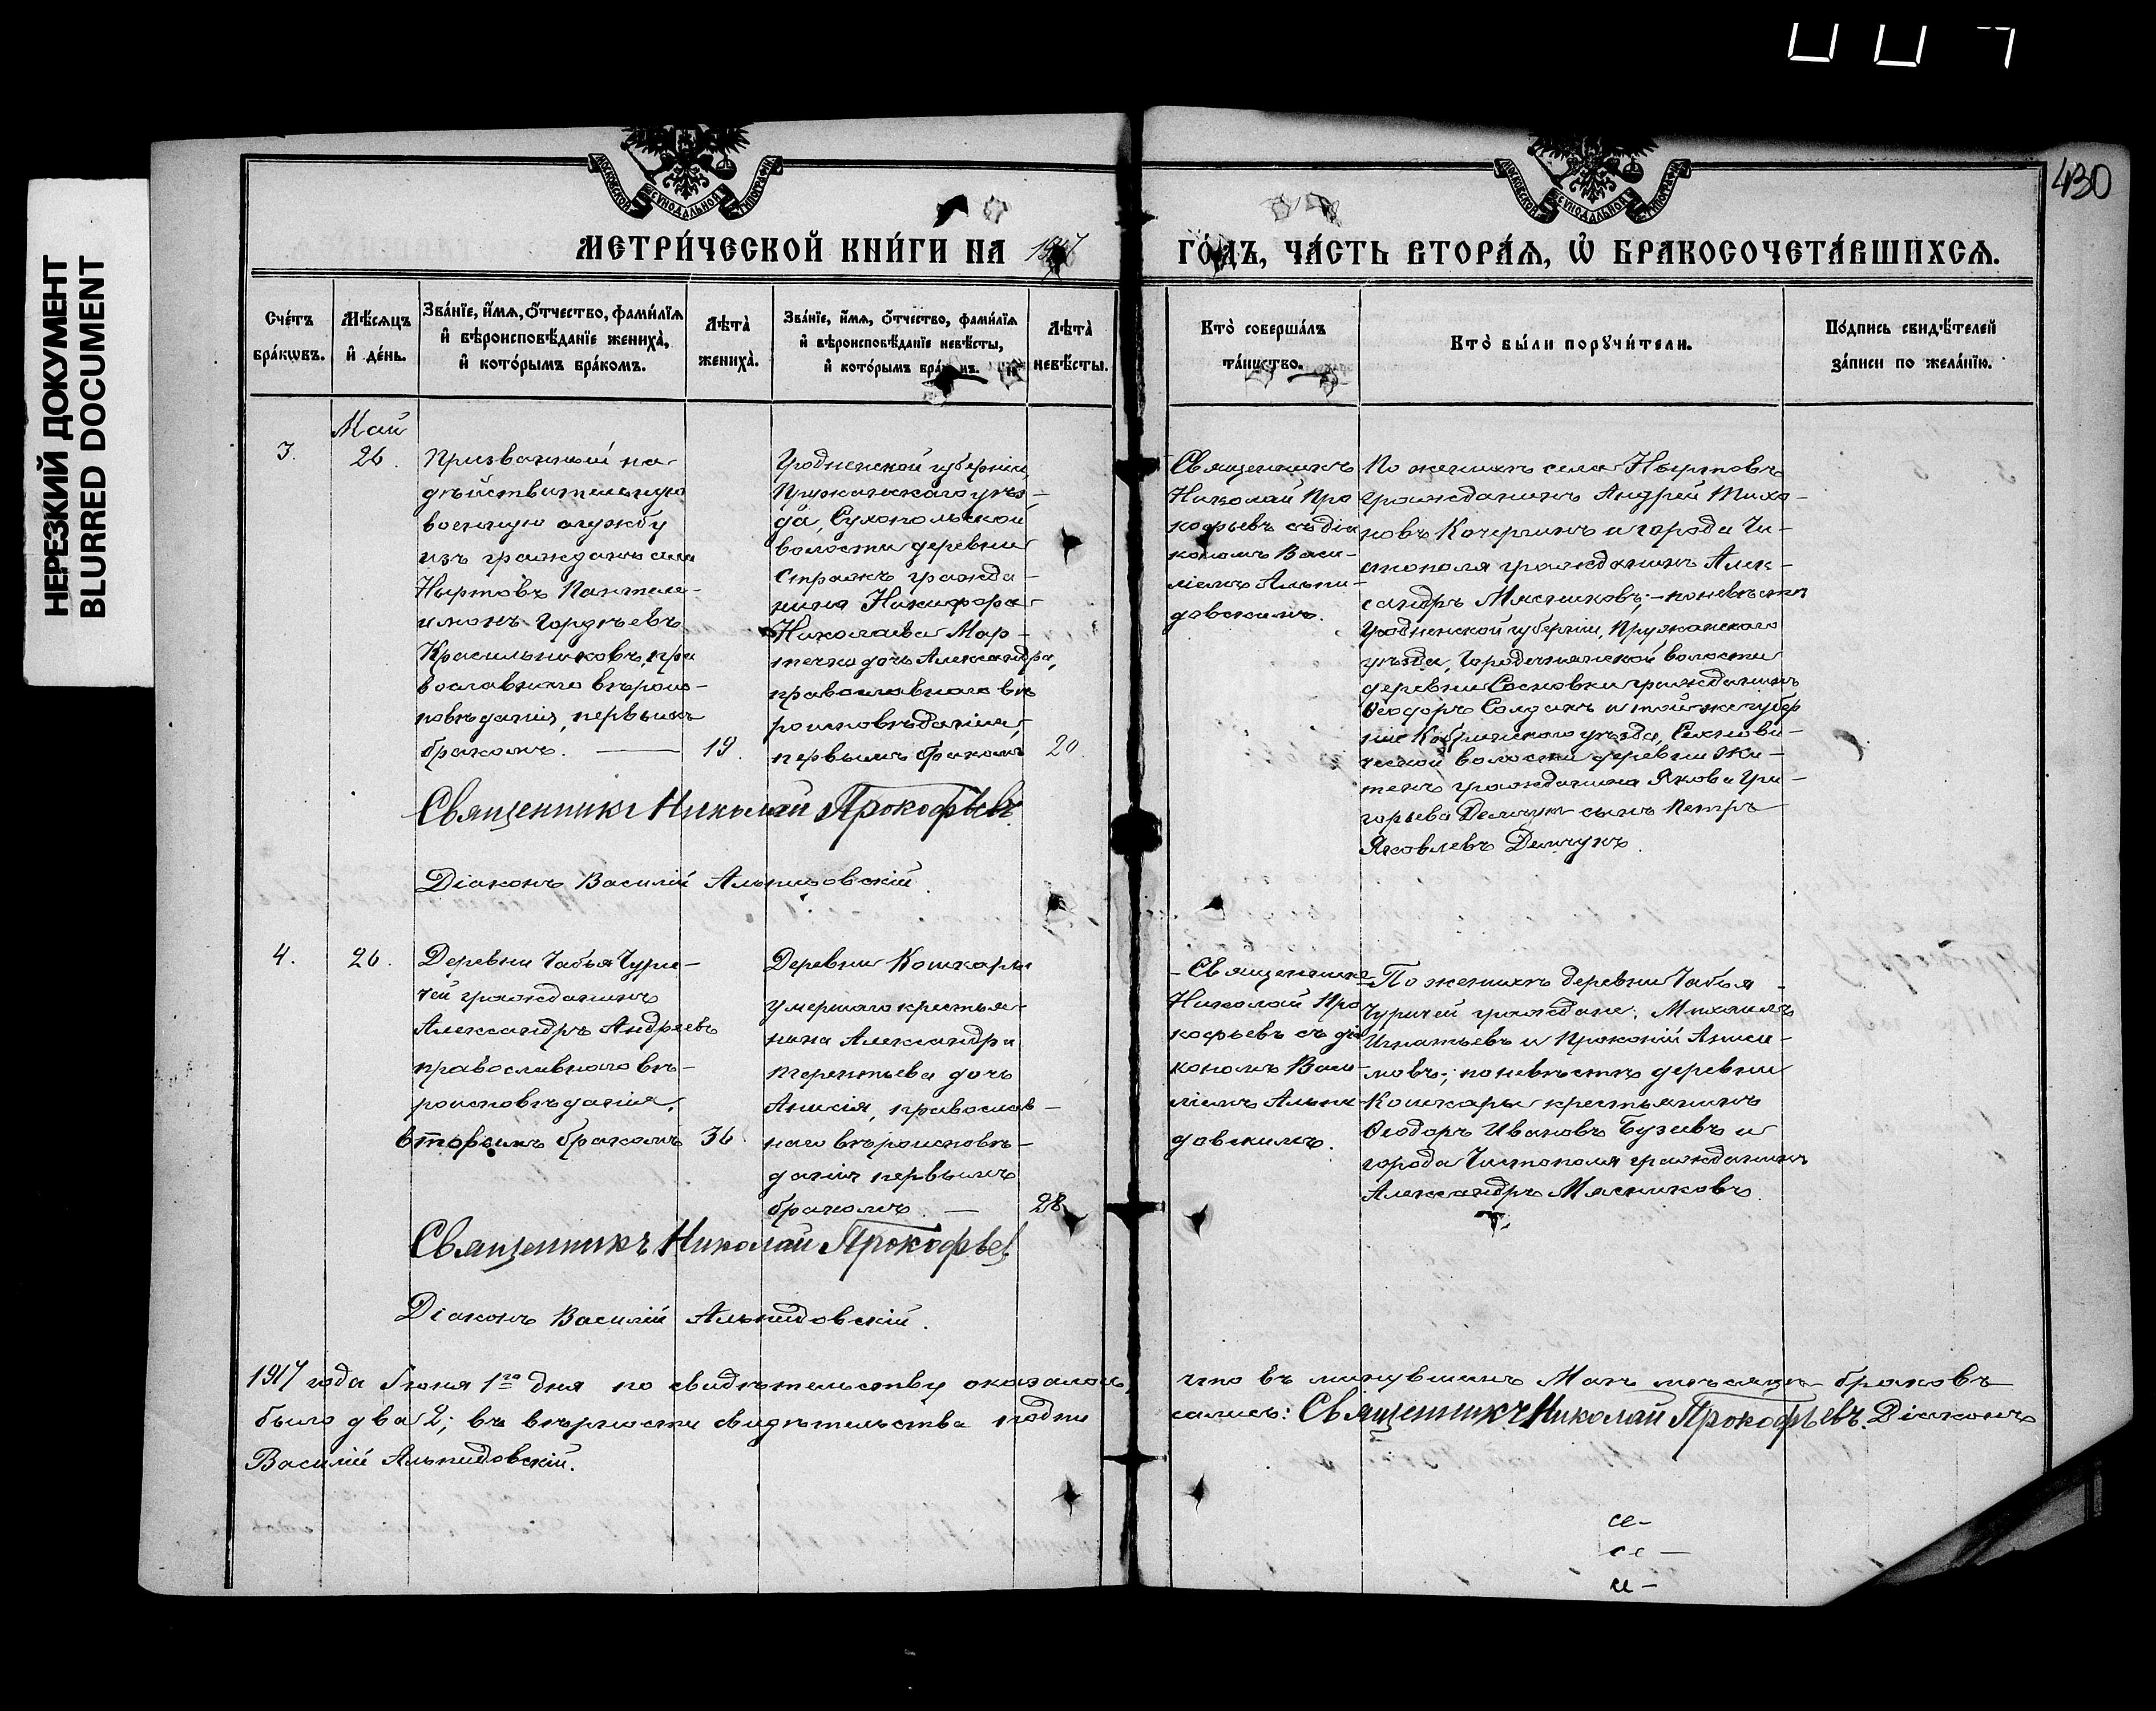 430
НЕРЕЗКИЙ ДОКУМЕНТ
BLURRED DOCUMENT
МОСКОВСКОЙ СѴНОДАЛЬНОЙ ТИПОГРАФІИ
МОСКОВСКОЙ СѴНОДАЛЬНОЙ ТИПОГРАФІИ
МЕТРИ́ЧЕСКОЙ КНИ́ГИ НА 1917 ГО́ДЪ, ЧА́СТЬ ВТОРА́Ѧ, Ѽ БРАКОСОЧЕТА́ВШИХСѦ.
Сче́тъ
бра́кѡвъ.
Мѣ́сяцъ
и҆ де́нь.
Зва́нїе, и҆́мѧ, ѻ҆́тчество, фами́лїѧ
и҆ вѣроисповѣ́данїе жениха̀,
и҆ кото́рымъ бра́комъ.
Лѣта̀
жениха̀.
Зва́нїе, и҆́мѧ, ѻ҆́тчество, фами́лїѧ
и҆ вѣроисповѣ́данїе невѣ́сты,
и҆ кото́рымъ бра́комъ.
Лѣта̀
невѣ́сты.
Кто̀ соверша́лъ
та́инство.
Кто̀ бы́ли порꙋчи́тели.
По́дпись свидѣ́телей
за́писи по жела́нїю.
3.
Май
26.
Призванный на
дѣйствительную
военную службу
изъ гражданъ села
Ныртовъ Пантеле-
имонъ Гордѣевъ
Красильниковъ, пра
вославнаго вѣроис-
повѣданія, первымъ
бракомъ. —
19.
Гродненской губерніи,
Пружанскаго уѣз-
да, Сухопольской
волости деревни
Стражъ гражда-
нина Никифора
Николаева Мар-
течко дочь Александра,
православнаго вѣ
роисповѣданія,
первымъ бракомъ
20.
Священникъ
Николай Про
кофьевъ съ діа
кономъ Васи-
ліемъ Альпи-
довскимъ.
По женихѣ села Ныртовъ
гражданинъ Андрей Тихо-
новъ Кочергинъ и города Чи-
стополя гражданинъ Алек-
сандръ Мясниковъ; — по невѣстѣ
Гродненской губерніи, Пружанскаго
уѣзда, Городечнянской волости
деревни Сосновки гражданинъ
Ѳеодоръ Солданъ и той же губер
ніи Кобринскаго уѣзда,
ческой волости деревни Жи-
тенъ гражданина Якова Гри-
горьева Демчукъ сынъ Петръ
Яковлевъ Демчукъ.
Священникъ Николай Прокофьевъ.
Діаконъ Василій Альпидовскій.
4.
26.
Деревни Чабья Чури-
чей гражданинъ
Александръ Андреевъ
православнаго вѣ-
роисповѣданія,
вторымъ бракомъ
36
Деревни Кошкары
умершаго крестья-
нина Александра
Терентьева дочь
Анисія, православ-
наго вѣроисповѣ-
данія первымъ
бракомъ. —
28
Священникъ
Николай Про
кофьевъ съ діа
кономъ Васи-
ліемъ Альпи
довскимъ.
По женихѣ деревни Чабья
Чуричей граждане: Михаилъ
Игнатьевъ и Прокопій Аниси-
мовъ; по невѣстѣ деревни
Кошкары крестьянинъ
Ѳеодоръ Ивановъ Бузевъ и
города Чистополя гражданинъ
Александръ Мясниковъ.
Священникъ Николай Прокофьевъ
Діаконъ Василій Альпидовскій.
1917 года Іюня 1го дня по свидѣтельству оказалось, что въ минувшемъ Маѣ мѣсяцѣ браковъ
было два 2; въ вѣрности свидѣтельства подпи сались: Священникъ Николай Прокофьевъ. Діаконъ
Василій Альпидовскій.